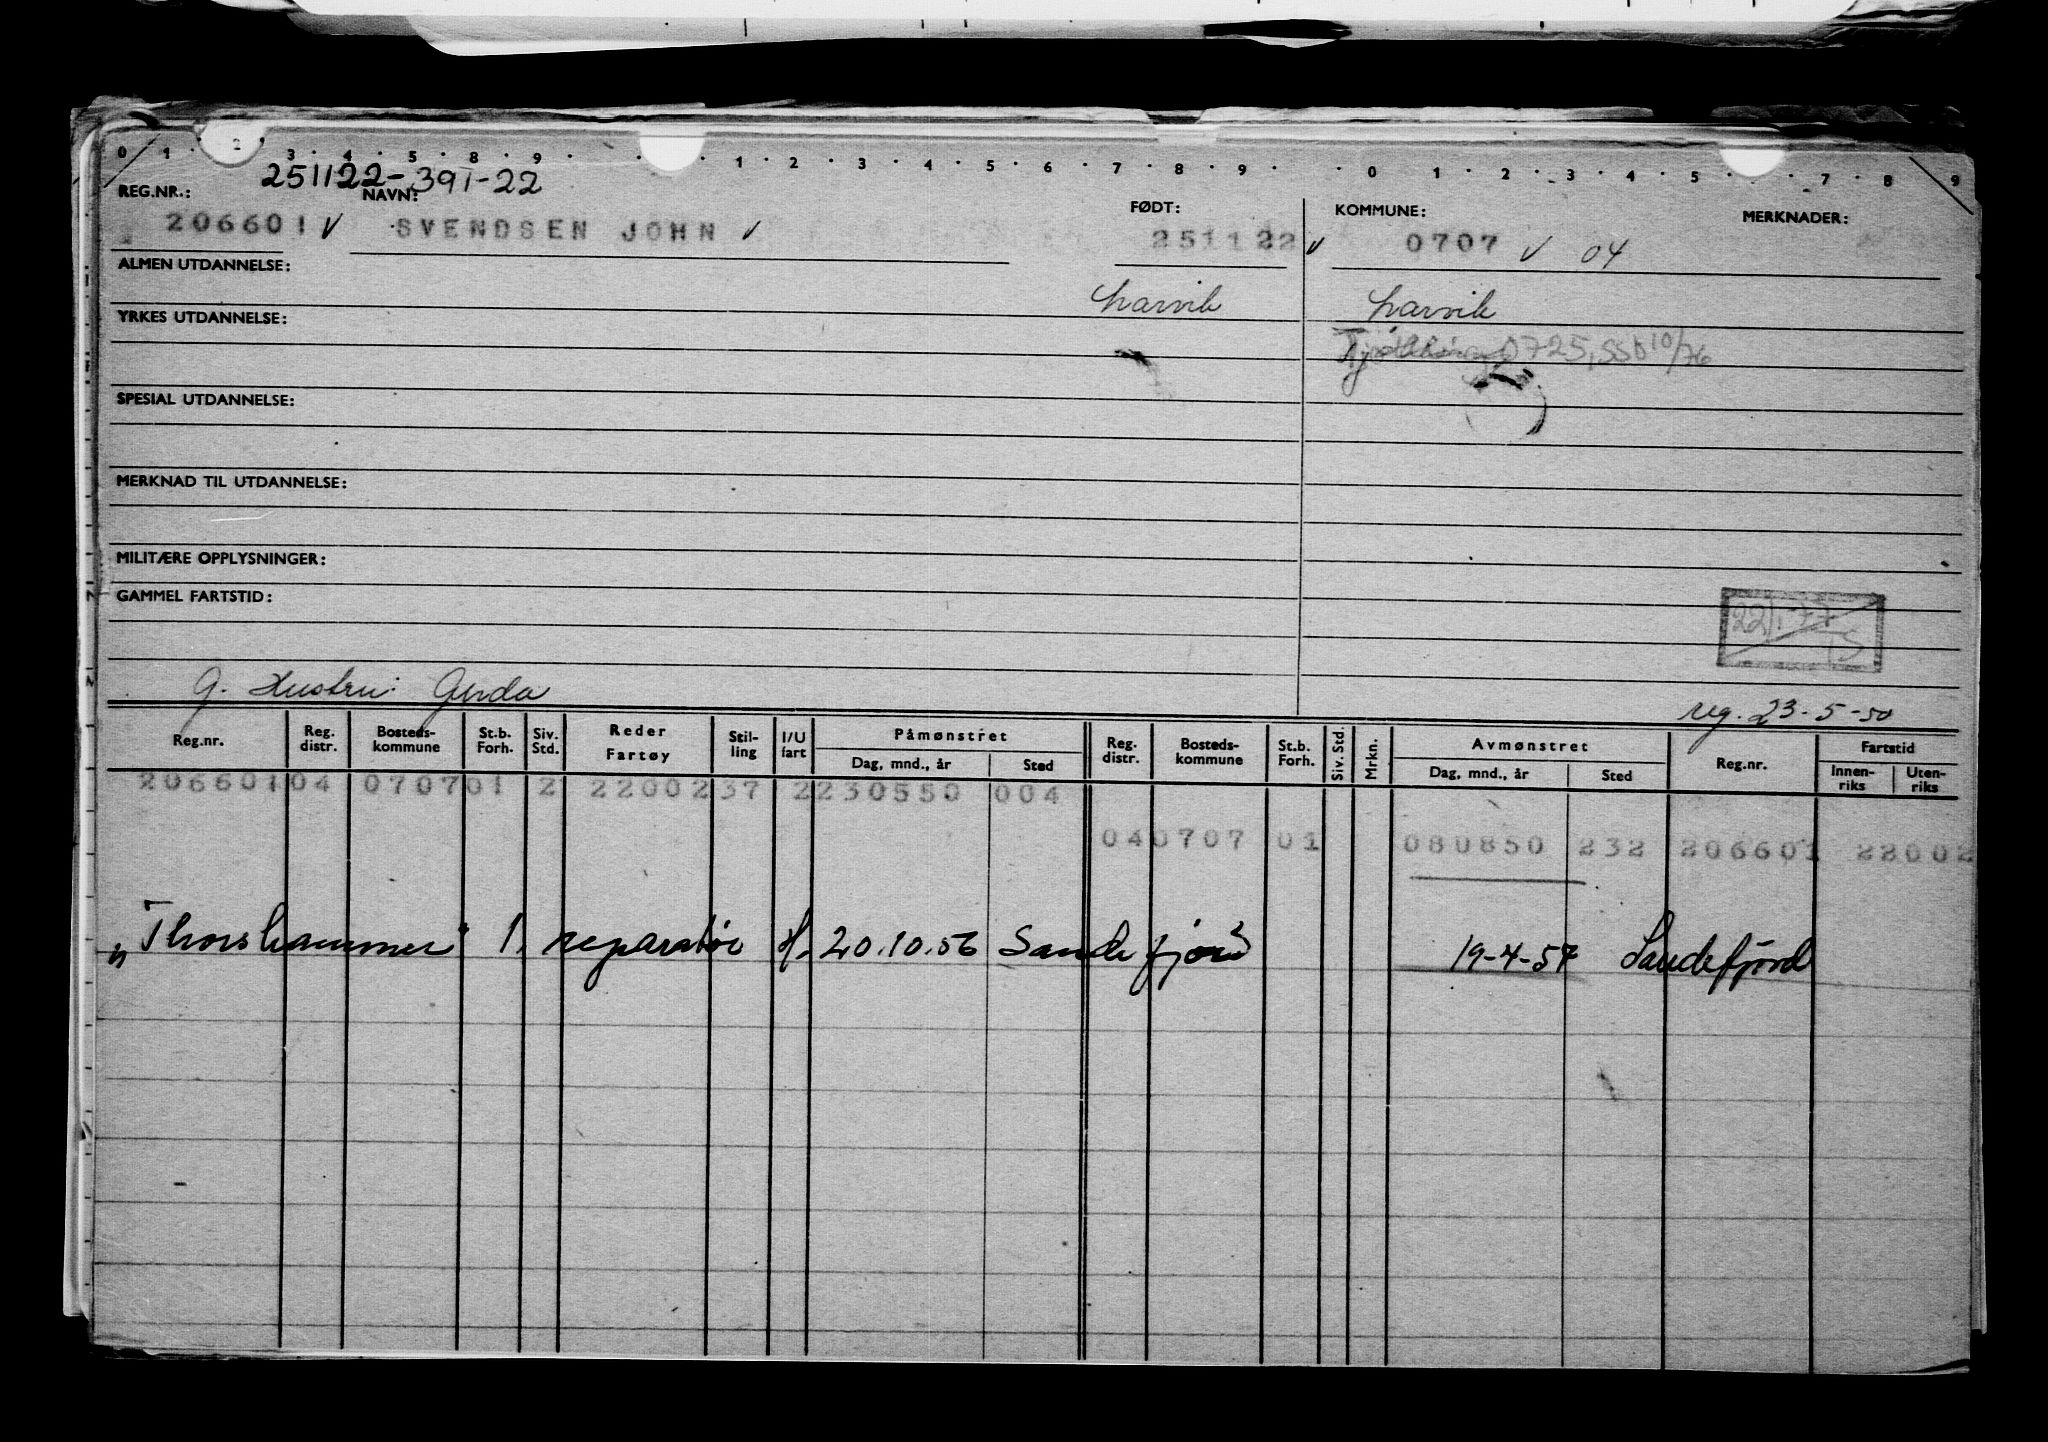 0 1 2 3 4 5 8 9 1 2 3 4 5 6 7 8 9 0 1 2 3 4 5 7 8 9
251122-391-22
REG.NR.: NAVN: FØDT: KOMMUNE: MERKNADER:
206601 V SVENDSEN JOHN V 251122 V 0707 V 04
ALMEN UTDANNELSE:
Larvik Larvik
YRKES UTDANNELSE:
0725, SSb 10/76
SPESIAL UTDANNELSE:
MERKNAD TIL UTDANNELSE:
MILITÆRE OPPLYSNINGER:
GAMMEL FARTSTID:
22/1-77
TS
G. Hustru: Gerda
reg. 23-5-50
Reg.nr. Reg. distr. Bosteds-kommune St.b. Forh. Siv. Std. Reder Fartøy Stil-ling I/U fart Påmønstret Dag, mnd., år Sted Reg. distr. Bosteds-kommune St.b. Forh. Siv. Std. Mrkn. Avmønstret Dag, mnd., år Sted Reg.nr. Fartstid Innen-riks Uten-riks
206601 04 0707 01 2 22002 37 2 230550 004
04 0707 01 080850 232 206601 22002
"Thorshammer" 1. reparatør H. 20.10.56 Sandefjord 19-4-57 Sandefjord